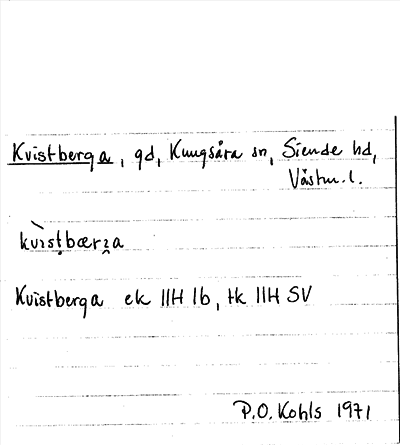 Kvistberga, gd, Kungsåra sn, Siende hd,
Västm. l.
kvìstbærga
Kvistberga ek 11H 1b, tk 11H SV
P.O. Kohls 1971